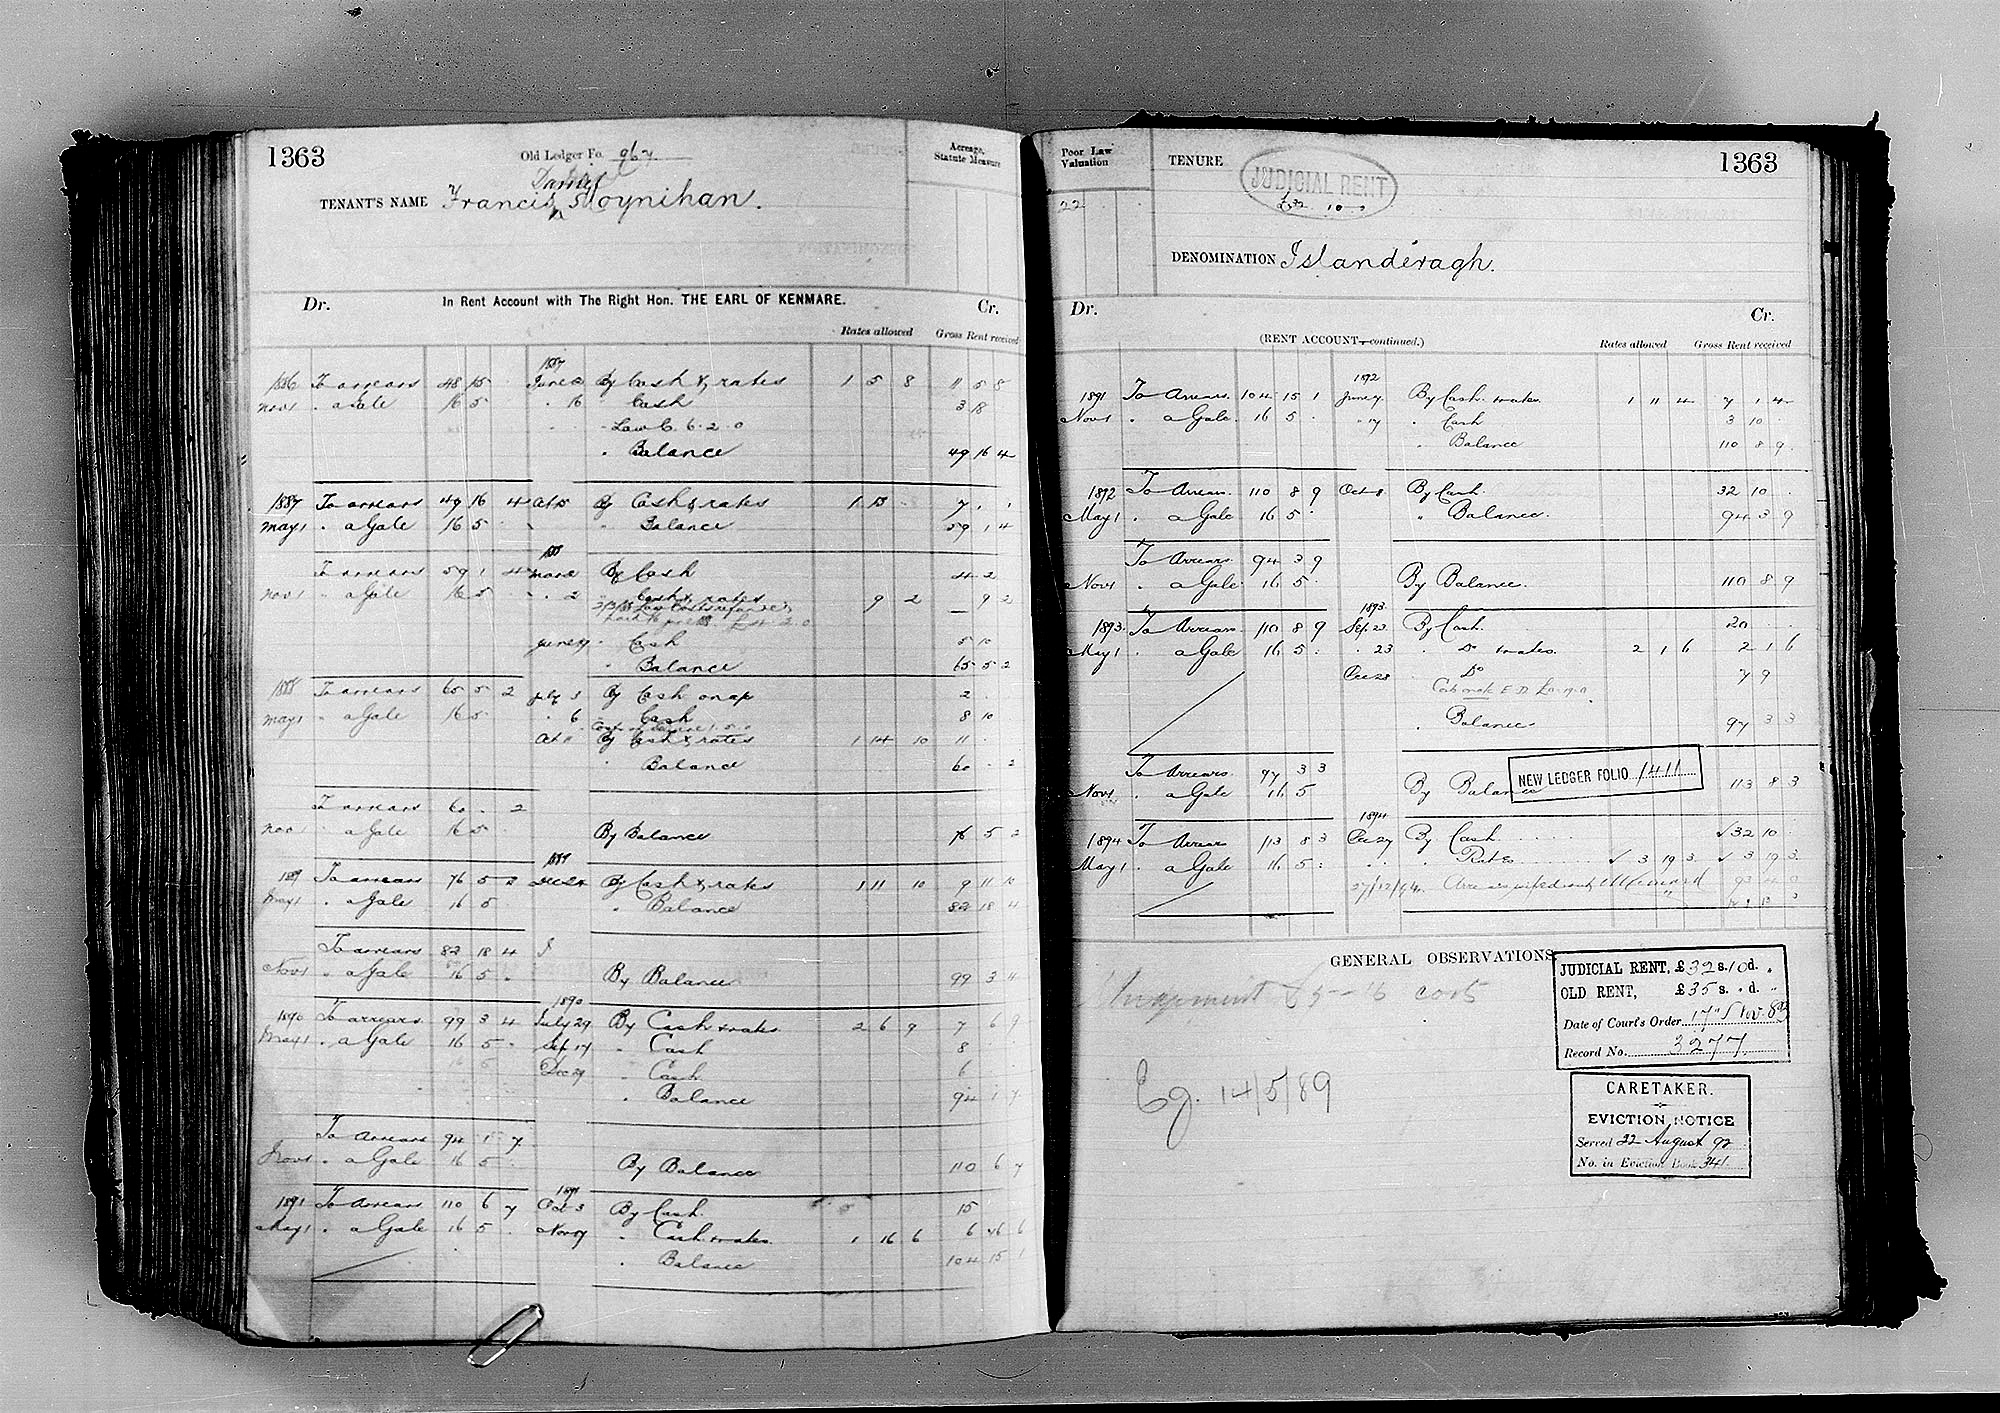 1363
Old Ledger Fo. 967
Acreage,
Statute Measure
Daniel
TENANT'S NAME Francis Moynihan.
Dr. In Rent Account with The Right Hon. THE EARL OF KENMARE. Cr.
Rates allowed Gross Rent received
1887
1886 To arrears 48 15 June By Cash & rates 1 5 8 11 5 8
Nov 1 " a Gale 16 5 " 16 " Cash 3 18
" Law C. 6.2.0
" Balance 49 16 4
1887 To arrears 49 16 4 Oct By Cash & rates 7
May 1 " a Gale 16 5 " Balance 59 1 4
1888
To arrears 59 1 4 By Cash 4 2
Nov 1 " a Gale 16 5 " 2 " Cash & rates 9 2 9 2
June " Cash 5 10
" Balance 65 5 2
1888 To arrears 65 5 2 July 3 By Cash 2
May 1 " a Gale 16 5 " 6 " Cash 8 10
Oct 11 By Cash & rates 1 14 10 11
" Balance 60 . 2
To arrears 60 . 2
Nov 1 " a Gale 16 5 By Balance 76 5 2
1889
1889 To arrears 76 5 2 Dec 24 By Cash & rates 1 11 10 9 11 10
May 1 " a Gale 16 5 " Balance 82 18 4
To arrears 82 18 4
Nov 1 " a Gale 16 5 . By Balance 99 3 4
1890
1890 To arrears 99 3 4 July 29 By Cash & rates 2 6 9 7 6 9
May 1 " a Gale 16 5 . Sep 17 " Cash 8
Dec 29 " Cash 6
" Balance 94 1 7
To Arrears 94 1 7
Nov 1 " a Gale 16 5 By Balance 110 6 7
1891
1891 To Arrears 110 6 7 Oct 3 By Cash 15
May 1 " a Gale 16 5 . Nov 17 " Cash & rates 1 16 6 6 16 6
" Balance 104 15 1
Poor Law
Valuation
22
TENURE
JUDICIAL RENT
£32 10 0
1363
DENOMINATION Islanderagh.
Dr. Cr.
(RENT ACCOUNT—continued.)
Rates allowed Gross Rent received
1892
1891 To Arrears 104 15 1 June 7 By Cash & rates 1 11 4 7 1 4
Nov 1 " a Gale 16 5 . " 17 " Cash 3 10
" Balance 110 8 9
1892 To Arrears 110 8 9 Oct 8 By Cash 32 10
May 1 " a Gale 16 5 . " Balance 94 3 9
To Arrears 94 3 9
Nov 1 " a Gale 16 5 . By Balance 110 8 9
1893
1893 To Arrears 110 8 9 Sep. 23 By Cash 20
May 1 " a Gale 16 5 . " 23 " Do & rates 2 1 6 2 1 6
Dec 28 " Do 7 9
" Balance 97 3 3
To Arrears 97 3 3
NEW LEDGER FOLIO 1411
Nov 1 " a Gale 16 5 By Balance 113 8 3
1894
1894 To Arrears 113 8 3 Dec 27 By Cash 32 10
May 1 " a Gale 16 5 . " Rates 3 19 3 3 19 3
27/12/94
GENERAL OBSERVATIONS
JUDICIAL RENT, £32 s. 10 d. .
OLD RENT, £35 s. . d. "
Date of Court's Order 17" Nov. 83
Record No. 3277
costs
Eg. 14/5/89
CARETAKER.
EVICTION NOTICE
Served 22 August 92
No. in Eviction Book 341